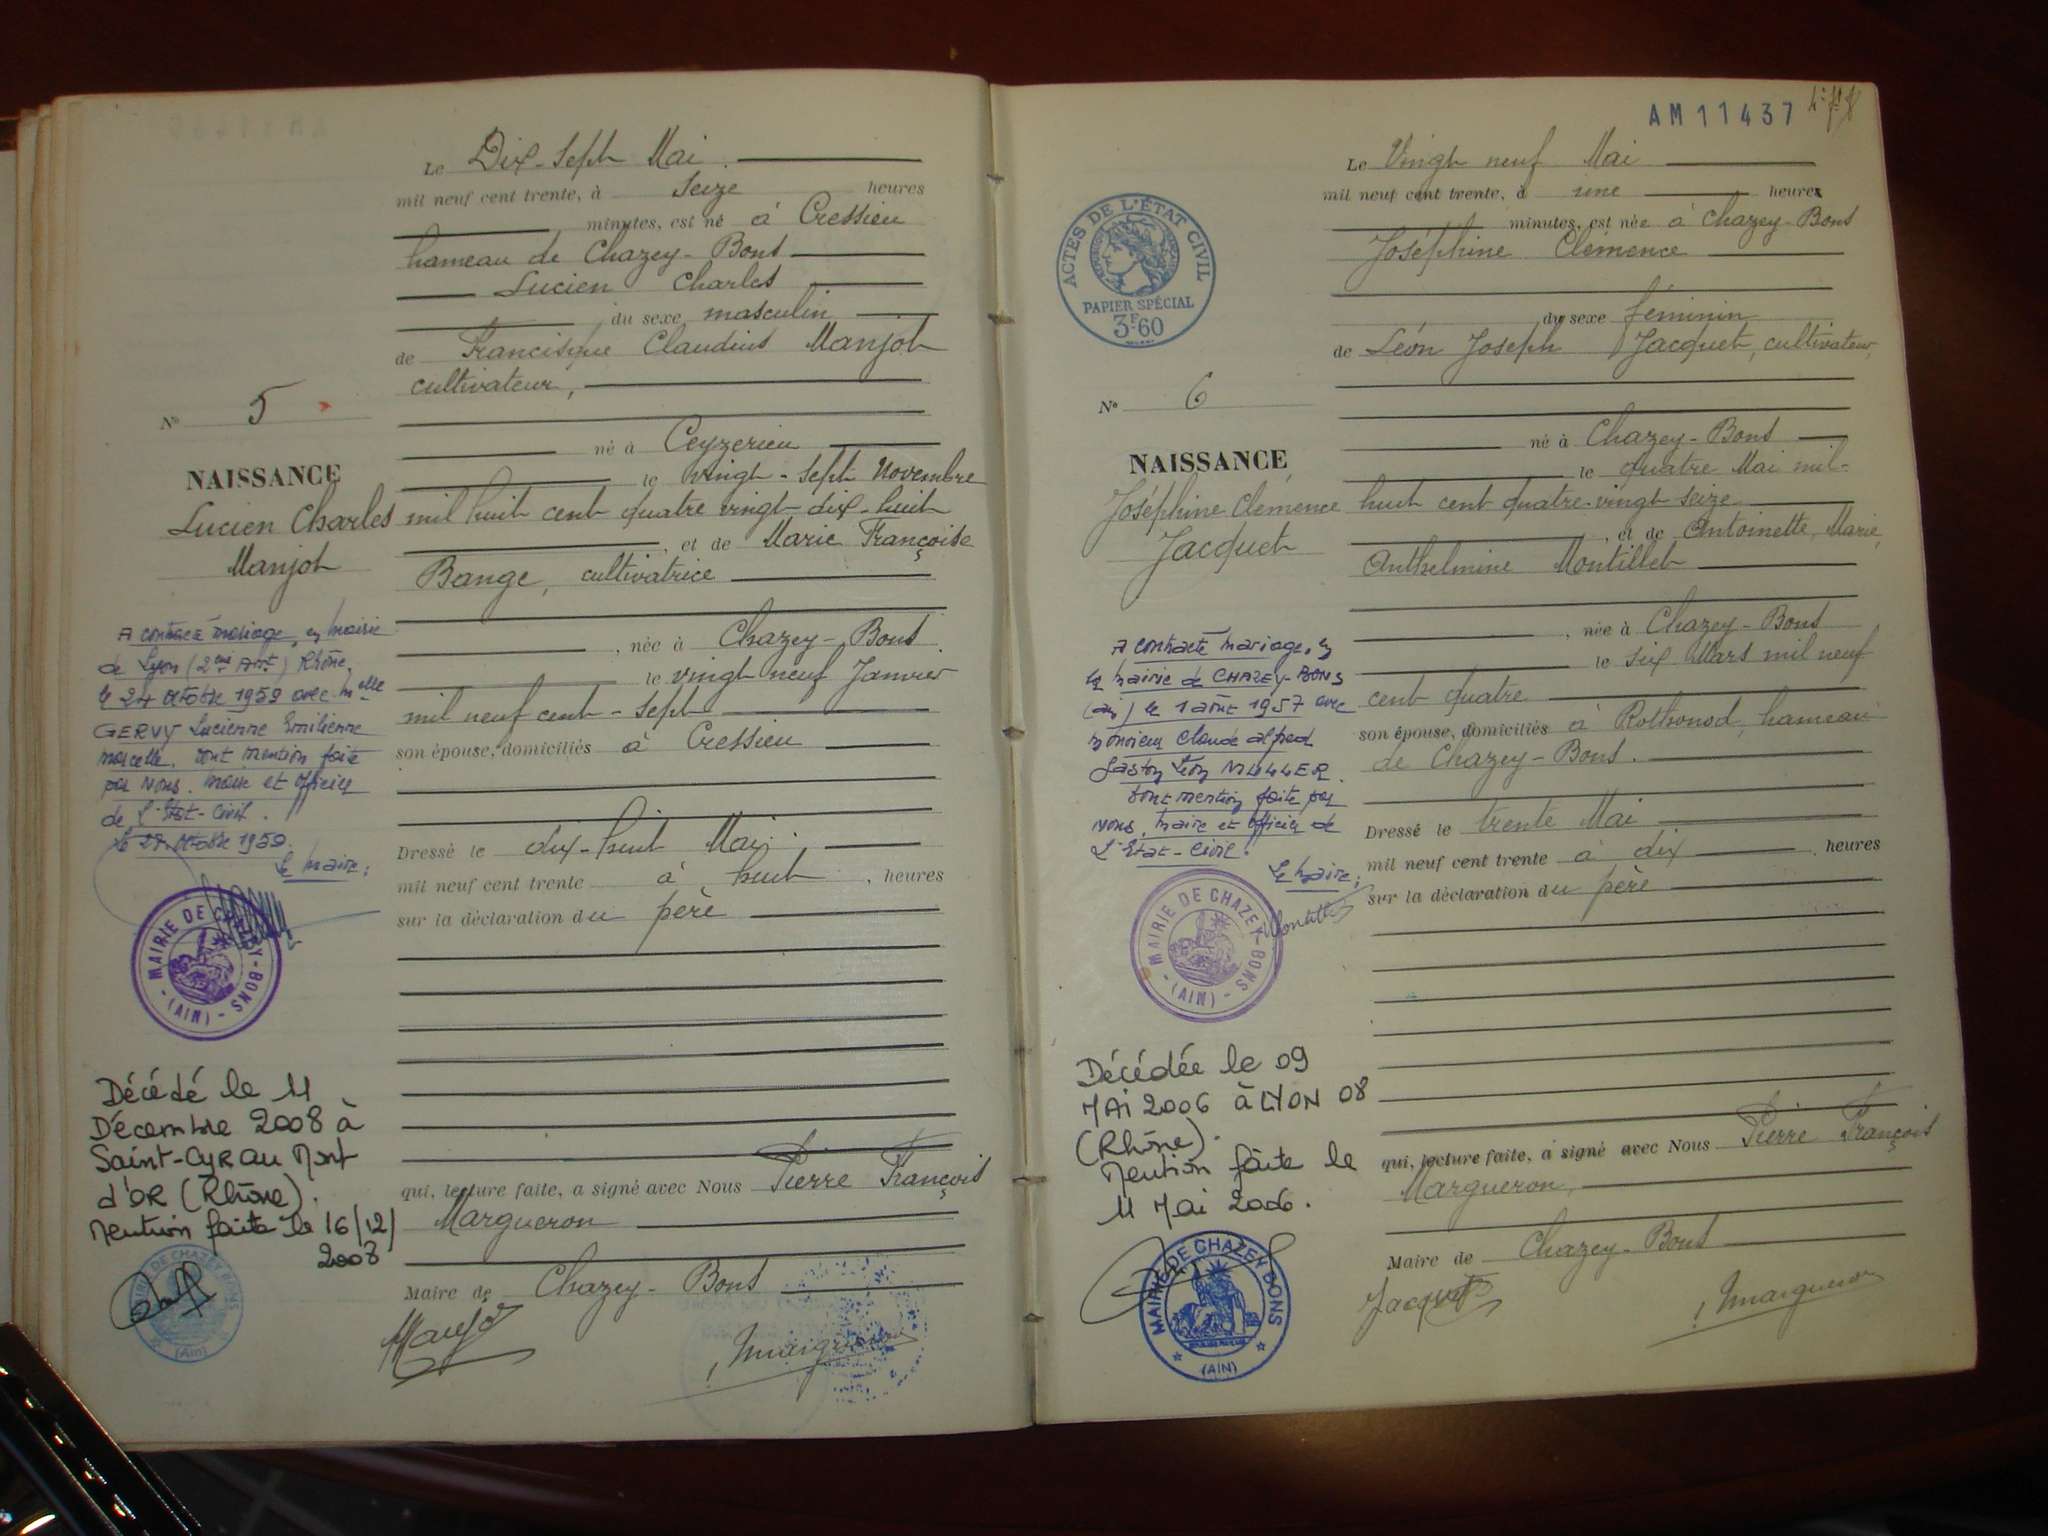 Le Dix-sept Mai
mil neuf cent trente, à seize heures
minutes, est né à Cressieu
hameau de Chazey-Bons
Lucien Charles
du sexe masculin
de Francisque Claudius Manjot
cultivateur,
né à Ceyzerieu
le vingt-sept Novembre
mil huit cent quatre vingt-dix-huit
, et de Marie Françoise
Bange, cultivatrice
, née à Chazey-Bons
le vingt neuf Janvier
mil neuf cent-sept
son épouse, domiciliés à Cressieu
Dressé le dix-huit Mai
mil neuf cent trente à huit, heures
sur la déclaration du père
qui, lecture faite, a signé avec Nous Pierre François
Margueron
Maire de Chazey-Bons
Margueron
N° 5
NAISSANCE
Lucien Charles
Manjot
A contracté mariage, en mairie
de Lyon (2eme Arrt) Rhône,
le 24 octobre 1959 avec Melle
GERVY Lucienne Emilienne
Marcelle. Dont mention faite
par Nous. Maire et officier
de l'Etat-Civil.
Le 27 octobre 1959.
Le Maire:
MAIRIE DE CHAZEY-BONS
(AIN)
Décédé le 11
Décembre 2008 à
Saint-Cyr au Mont
d'OR (Rhône).
Mention faite le 16/12/
2008
MAIRIE DE CHAZEY BONS
(Ain)
AM11437
Le Vingt neuf Mai
mil neuf cent trente, à une heure
minutes, est née à Chazey-Bons
Joséphine Clémence
du sexe féminin
de Léon Joseph Jacquet, cultivateur,
né à Chazey-Bons
le quatre Mai mil-
huit cent quatre-vingt seize
, et de Antoinette, Marie,
Anthelmine Montillet
, née à Chazey-Bons
le six Mars mil neuf
cent quatre
son épouse, domiciliés à Rothonod, hameau
de Chazey-Bons.
Dressé le trente Mai
mil neuf cent trente à dix, heures
sur la déclaration du père
qui, lecture faite, a signé avec Nous Pierre François
Margueron,
Maire de Chazey-Bons
Jacquet
Margueron
ACTES DE L'ÉTAT CIVIL
PAPIER SPÉCIAL
3F60
N° 6
NAISSANCE
Joséphine Clémence
Jacquet
A contracté mariage, en
la mairie de CHAZEY-BONS
(Ain) le 1 août 1957 avec
Monsieur Claude Alfred
Gaston Léon MULLER.
Dont mention faite par
Nous, Maire et officier de
l'Etat-Civil.
Le Maire:
MAIRIE DE CHAZEY-BONS
(AIN)
Décédée le 09
MAI 2006 à LYON 08
(Rhône).
Mention faite le
11 Mai 2006.
MAIRIE DE CHAZEY BONS
(AIN)